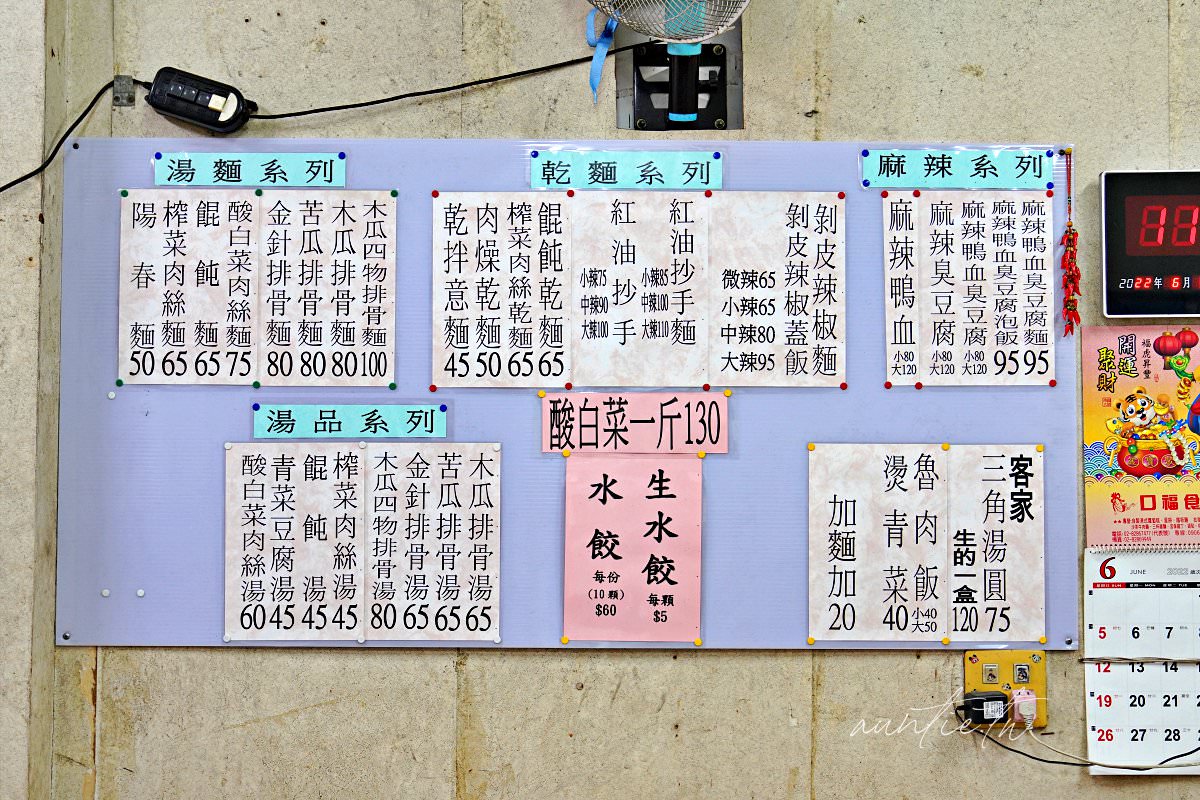 湯麵系列
陽春麵50
榨菜肉絲麵65
餛飩麵65
酸白菜肉絲麵75
金針排骨麵80
苦瓜排骨麵80
木瓜排骨麵80
木瓜四物排骨麵100
乾麵系列
乾拌意麵45
肉燥乾麵50
榨菜肉絲乾麵65
餛飩乾麵65
紅油抄手
小辣75
中辣90
大辣100
紅油抄手麵
小辣85
中辣100
大辣110
微辣65
小辣65
中辣80
大辣95
剝皮辣椒蓋飯
剝皮辣椒麵
麻辣系列
麻辣鴨血
小80
大120
麻辣臭豆腐
小80
大120
麻辣鴨血臭豆腐
小80
大120
麻辣鴨血臭豆腐泡飯95
麻辣鴨血臭豆腐麵95
湯品系列
酸白菜肉絲湯60
青菜豆腐湯45
餛飩湯45
榨菜肉絲湯45
木瓜四物排骨湯80
金針排骨湯65
苦瓜排骨湯65
木瓜排骨湯65
酸白菜一斤130
水餃
每份
(10顆)
$60
生水餃
每顆
$5
加麵加20
燙青菜40
魯肉飯
小40
大50
生的一盒120
客家
三角湯圓75
11
2022年 6月
開運
聚財
福虎昇豐
口福食
6 JUNE 2022
5 6 7
12 13 14
19 20 21
26 27 28
auntie.th